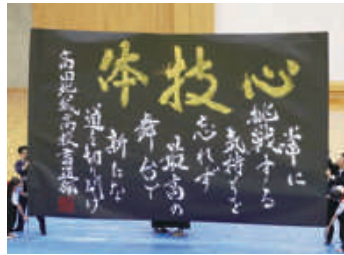 心技体
常に
挑戦する
気持ちを
忘れず
最高の
舞台で
新たな
道を切り開け
高田北城高校書道部